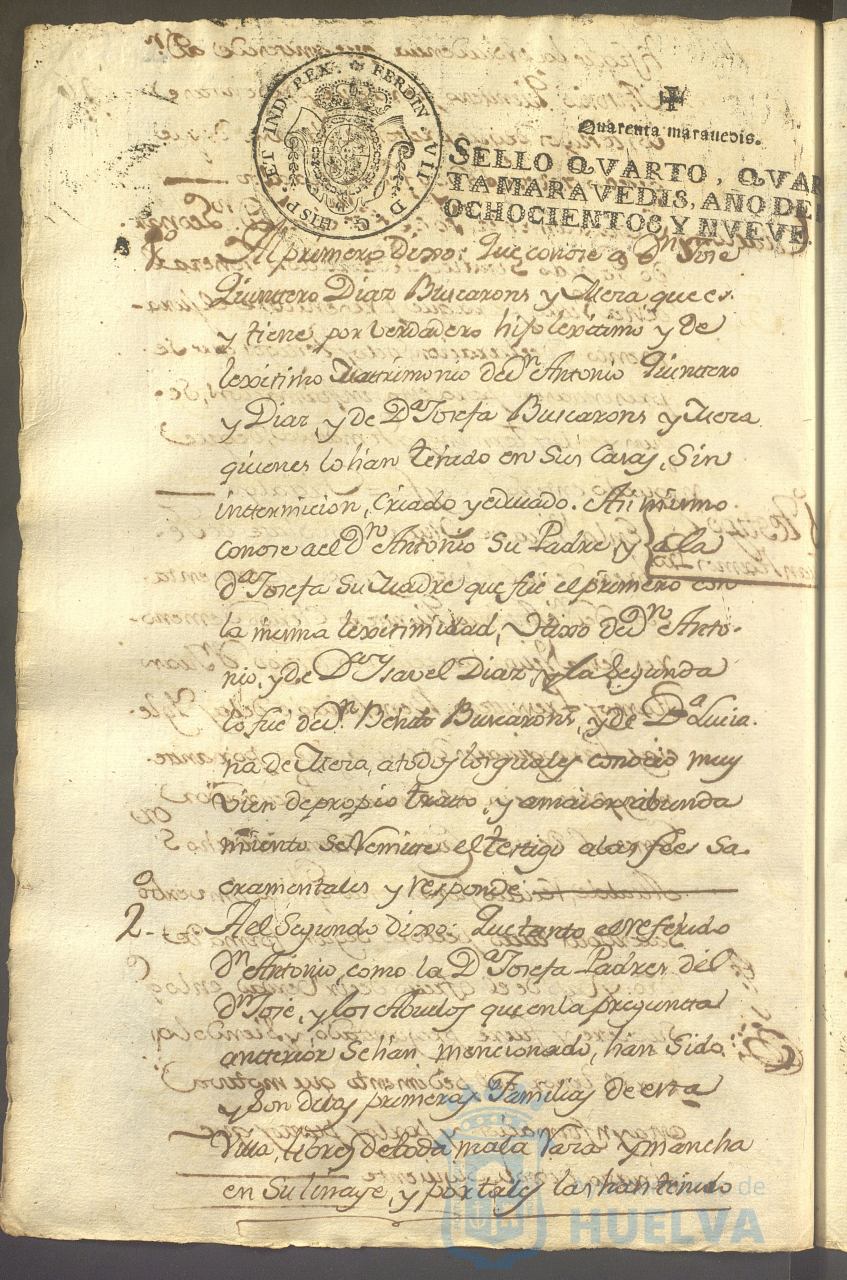 HISP. ET IND. REX. FERDIN. VII. D. G.
Quarenta marauedis.
SELLO QVARTO, QVAR
TA MARAVEDIS, AÑO DE
OCHOCIENTOS Y NVEVE.
Al primero dixo: Que conose a Dn. Jose
Quintero Diaz Buscarons y Mera que es
y tiene por verdadero hijo lexitimo y de
lexitimo Matrimonio de Dn. Antonio Quintero
y Diaz, y de Da. Josefa Buscarons y Mera
quienes lo han tenido en sus Casas, Sin
intermicion, Criado y educado. Asi mismo
conose a el Dn. Antonio su Padre, y a la
Da. Josefa su Madre que fue el primero con
la misma lexitimidad, Hixo de Dn. Anto-
nio, y de Da. Isavel Diaz, y la Segunda
lo fue de Dn. Benito Buscarons, y de Da. Lucia-
na de Mera, a todos los quales conocio muy
vien de propio trato, y a maior abunda
miento se Remite el testigo a las fees Sa-
cramentales y responde
2. Al Segundo dixo: Que tanto el referido
Dn. Antonio, como la Da. Josefa Padres del
Dn. Jose, y los Abuelos que en la pregunta
anterior se han mencionado, han sido
y son de las primeras Familias de esta
Villa, libres de toda mala Raza y mancha
en su linaje, y por tales los han tenido
de
HUELVA